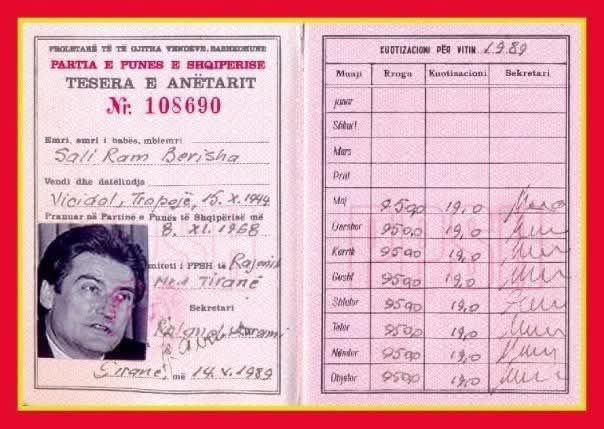 PROLETARË TË TË GJITHA VENDEVE, BASHKOHUNI!
PARTIA E PUNES E SHQIPERISE
TESERA E ANËTARIT
Nr. 108690
Emri, emri i babës, mbiemri
Sali Ram Berisha
Vendi dhe datëlindja
Viçidol, Tropojë, 15.X.1944
Pranuar në Partinë e Punës të Shqipërisë më
8. XI. 1968
miteti i PPSH të Rajonit
Tiranë
Sekretari
Tiranë, më 14.V.1989
KUOTIZACIONI PËR VITIN 1989
Muaji Rroga Kuotizacioni Sekretari
Janar
Shkurt
Mars
Prill
Maj 950,0 19,0
Qershor 950,0 19,0
Korrik 950,0 19,0
Gusht 950,0 19,0
Shtator 950,0 19,0
Tetor 950,0 19,0
Nëndor 950,0 19,0
Dhjetor 950,0 19,0